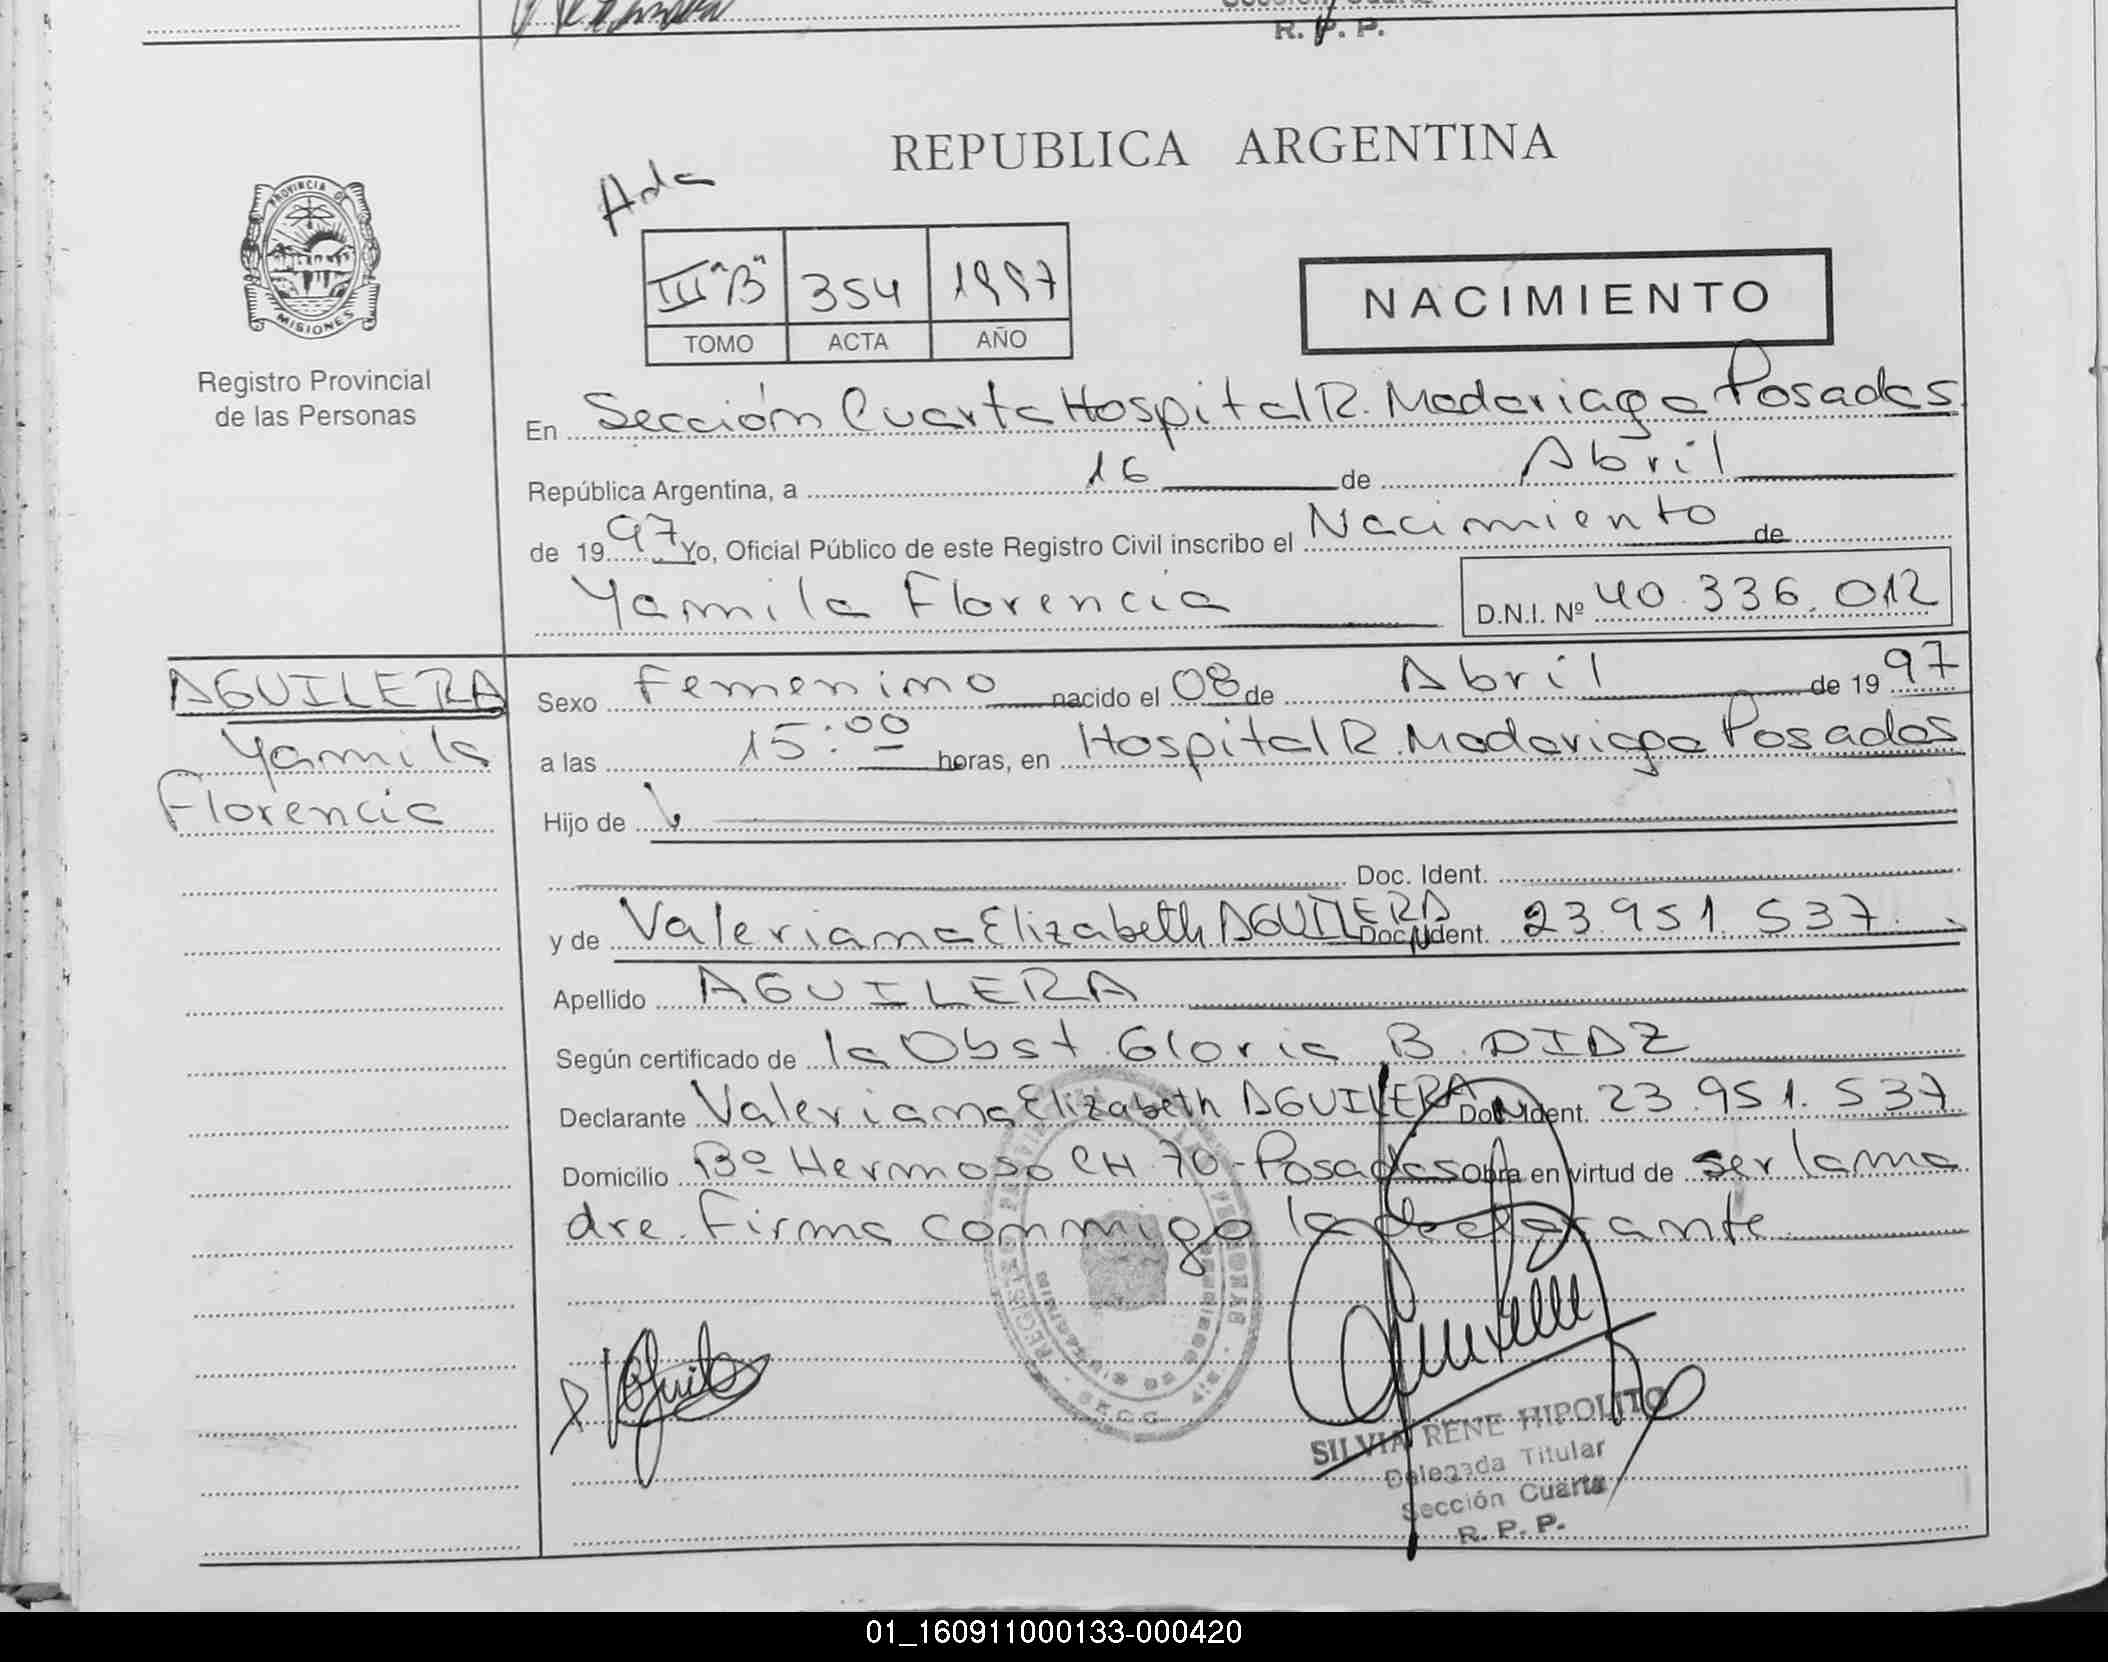 R. P. P.
REPUBLICA ARGENTINA
PROVINCIA DE
MISIONES
Registro Provincial
de las Personas
III "B" 354 1997
TOMO ACTA AÑO
NACIMIENTO
En Sección Cuarta Hospital R. Madariaga Posadas
República Argentina, a 16 de Abril
de 1997 Yo, Oficial Público de este Registro Civil inscribo el Nacimiento de
Yamila Florencia D.N.I. Nº 40.336.012
AGUILERA
Yamila
Florencia
Sexo Femenino nacido el 08 de Abril de 1997
a las 15:00 horas, en Hospital R. Madariaga Posadas
Hijo de
Doc. Ident.
y de Valeriana Elizabeth AGUILERA Doc. Ident. 23.951.537.
Apellido AGUILERA
Según certificado de la Obst. Gloria B. DIAZ
Declarante Valeriana Elizabeth AGUILERA Doc. Ident. 23.951.537
Domicilio Bº Hermoso CH 70-Posadas Obra en virtud de ser la ma
dre. Firma conmigo la declarante
SILVIA RENE HIPOLITO
Delegada Titular
Sección Cuarta
R. P. P.
01_160911000133-000420